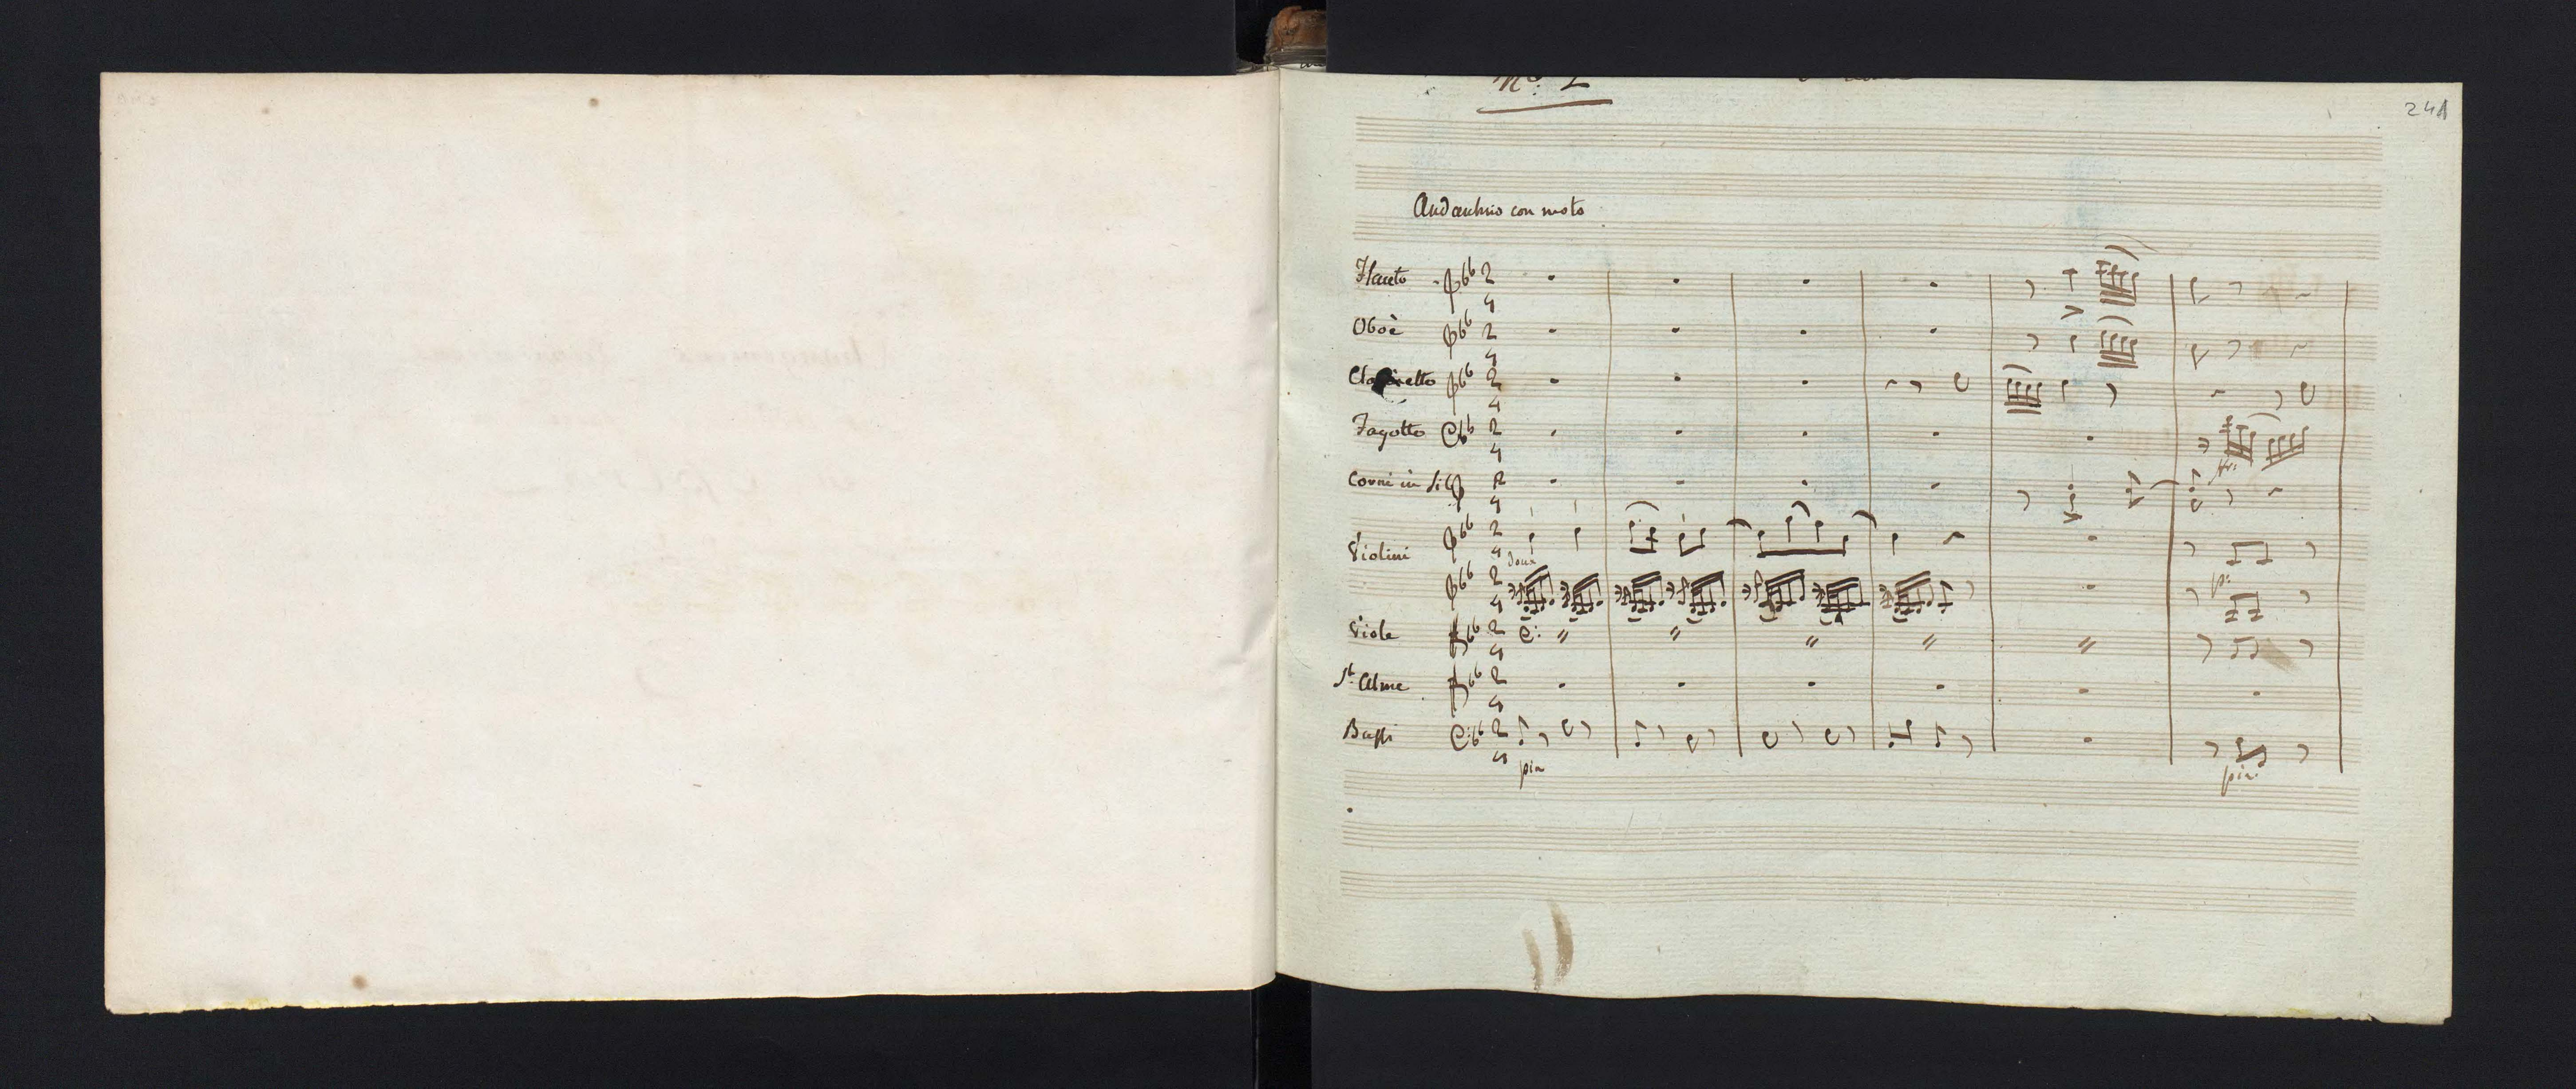 No: 2
241
Andantino con moto
Flauto
Oboè
Clarinetto
Fagotto
Corni in Si
Violini
doux
p:
Viole
St. Alme
Bassi
pia
pia